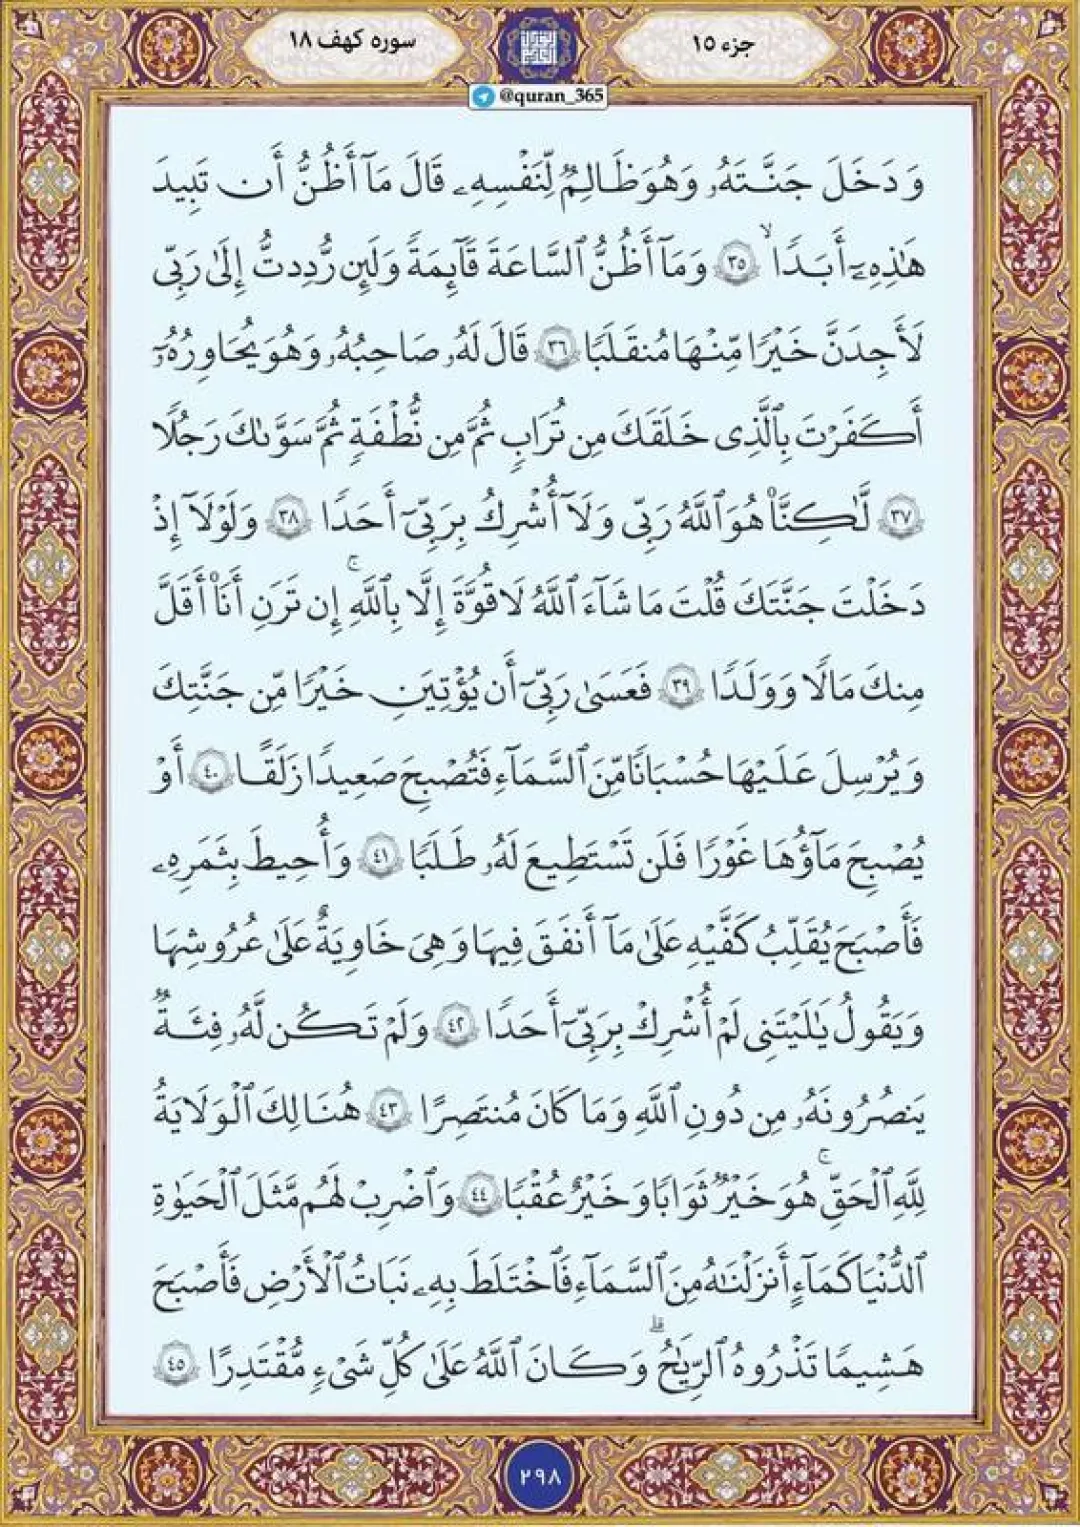 جزء ۱۵
سوره کهف ۱۸
@quran_365
وَدَخَلَ جَنَّتَهُۥ وَهُوَ ظَالِمٌ لِّنَفْسِهِۦ قَالَ مَآ أَظُنُّ أَن تَبِيدَ
هَٰذِهِۦٓ أَبَدًا ۙ ﴿٣٥﴾ وَمَآ أَظُنُّ ٱلسَّاعَةَ قَآئِمَةً وَلَئِن رُّدِدتُّ إِلَىٰ رَبِّى
لَأَجِدَنَّ خَيْرًا مِّنْهَا مُنقَلَبًا ﴿٣٦﴾ قَالَ لَهُۥ صَاحِبُهُۥ وَهُوَ يُحَاوِرُهُۥٓ
أَكَفَرْتَ بِٱلَّذِى خَلَقَكَ مِن تُرَابٍ ثُمَّ مِن نُّطْفَةٍ ثُمَّ سَوَّىٰكَ رَجُلًا
﴿٣٧﴾ لَّٰكِنَّا۠ هُوَ ٱللَّهُ رَبِّى وَلَآ أُشْرِكُ بِرَبِّىٓ أَحَدًا ﴿٣٨﴾ وَلَوْلَآ إِذْ
دَخَلْتَ جَنَّتَكَ قُلْتَ مَا شَآءَ ٱللَّهُ لَا قُوَّةَ إِلَّا بِٱللَّهِ ۚ إِن تَرَنِ أَنَا۠ أَقَلَّ
مِنكَ مَالًا وَوَلَدًا ﴿٣٩﴾ فَعَسَىٰ رَبِّىٓ أَن يُؤْتِيَنِ خَيْرًا مِّن جَنَّتِكَ
وَيُرْسِلَ عَلَيْهَا حُسْبَانًا مِّنَ ٱلسَّمَآءِ فَتُصْبِحَ صَعِيدًا زَلَقًا ﴿٤٠﴾ أَوْ
يُصْبِحَ مَآؤُهَا غَوْرًا فَلَن تَسْتَطِيعَ لَهُۥ طَلَبًا ﴿٤١﴾ وَأُحِيطَ بِثَمَرِهِۦ
فَأَصْبَحَ يُقَلِّبُ كَفَّيْهِ عَلَىٰ مَآ أَنفَقَ فِيهَا وَهِىَ خَاوِيَةٌ عَلَىٰ عُرُوشِهَا
وَيَقُولُ يَٰلَيْتَنِى لَمْ أُشْرِكْ بِرَبِّىٓ أَحَدًا ﴿٤٢﴾ وَلَمْ تَكُن لَّهُۥ فِئَةٌ
يَنصُرُونَهُۥ مِن دُونِ ٱللَّهِ وَمَا كَانَ مُنتَصِرًا ﴿٤٣﴾ هُنَالِكَ ٱلْوَلَايَةُ
لِلَّهِ ٱلْحَقِّ ۚ هُوَ خَيْرٌ ثَوَابًا وَخَيْرٌ عُقْبًا ﴿٤٤﴾ وَٱضْرِبْ لَهُم مَّثَلَ ٱلْحَيَوٰةِ
ٱلدُّنْيَا كَمَآءٍ أَنزَلْنَٰهُ مِنَ ٱلسَّمَآءِ فَٱخْتَلَطَ بِهِۦ نَبَاتُ ٱلْأَرْضِ فَأَصْبَحَ
هَشِيمًا تَذْرُوهُ ٱلرِّيَٰحُ ۗ وَكَانَ ٱللَّهُ عَلَىٰ كُلِّ شَىْءٍ مُّقْتَدِرًا ﴿٤٥﴾
۲۹۸